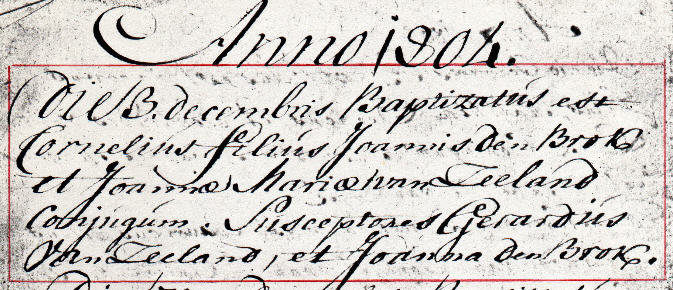 Anno 1804.
Die 13. decembris Baptizatus est
Cornelius filius Joannis den Brok
et Joannæ Mariæ van Zeeland
Conjugum. Susceptores Gerardus
Van Zeeland, et Joanna den Brok.